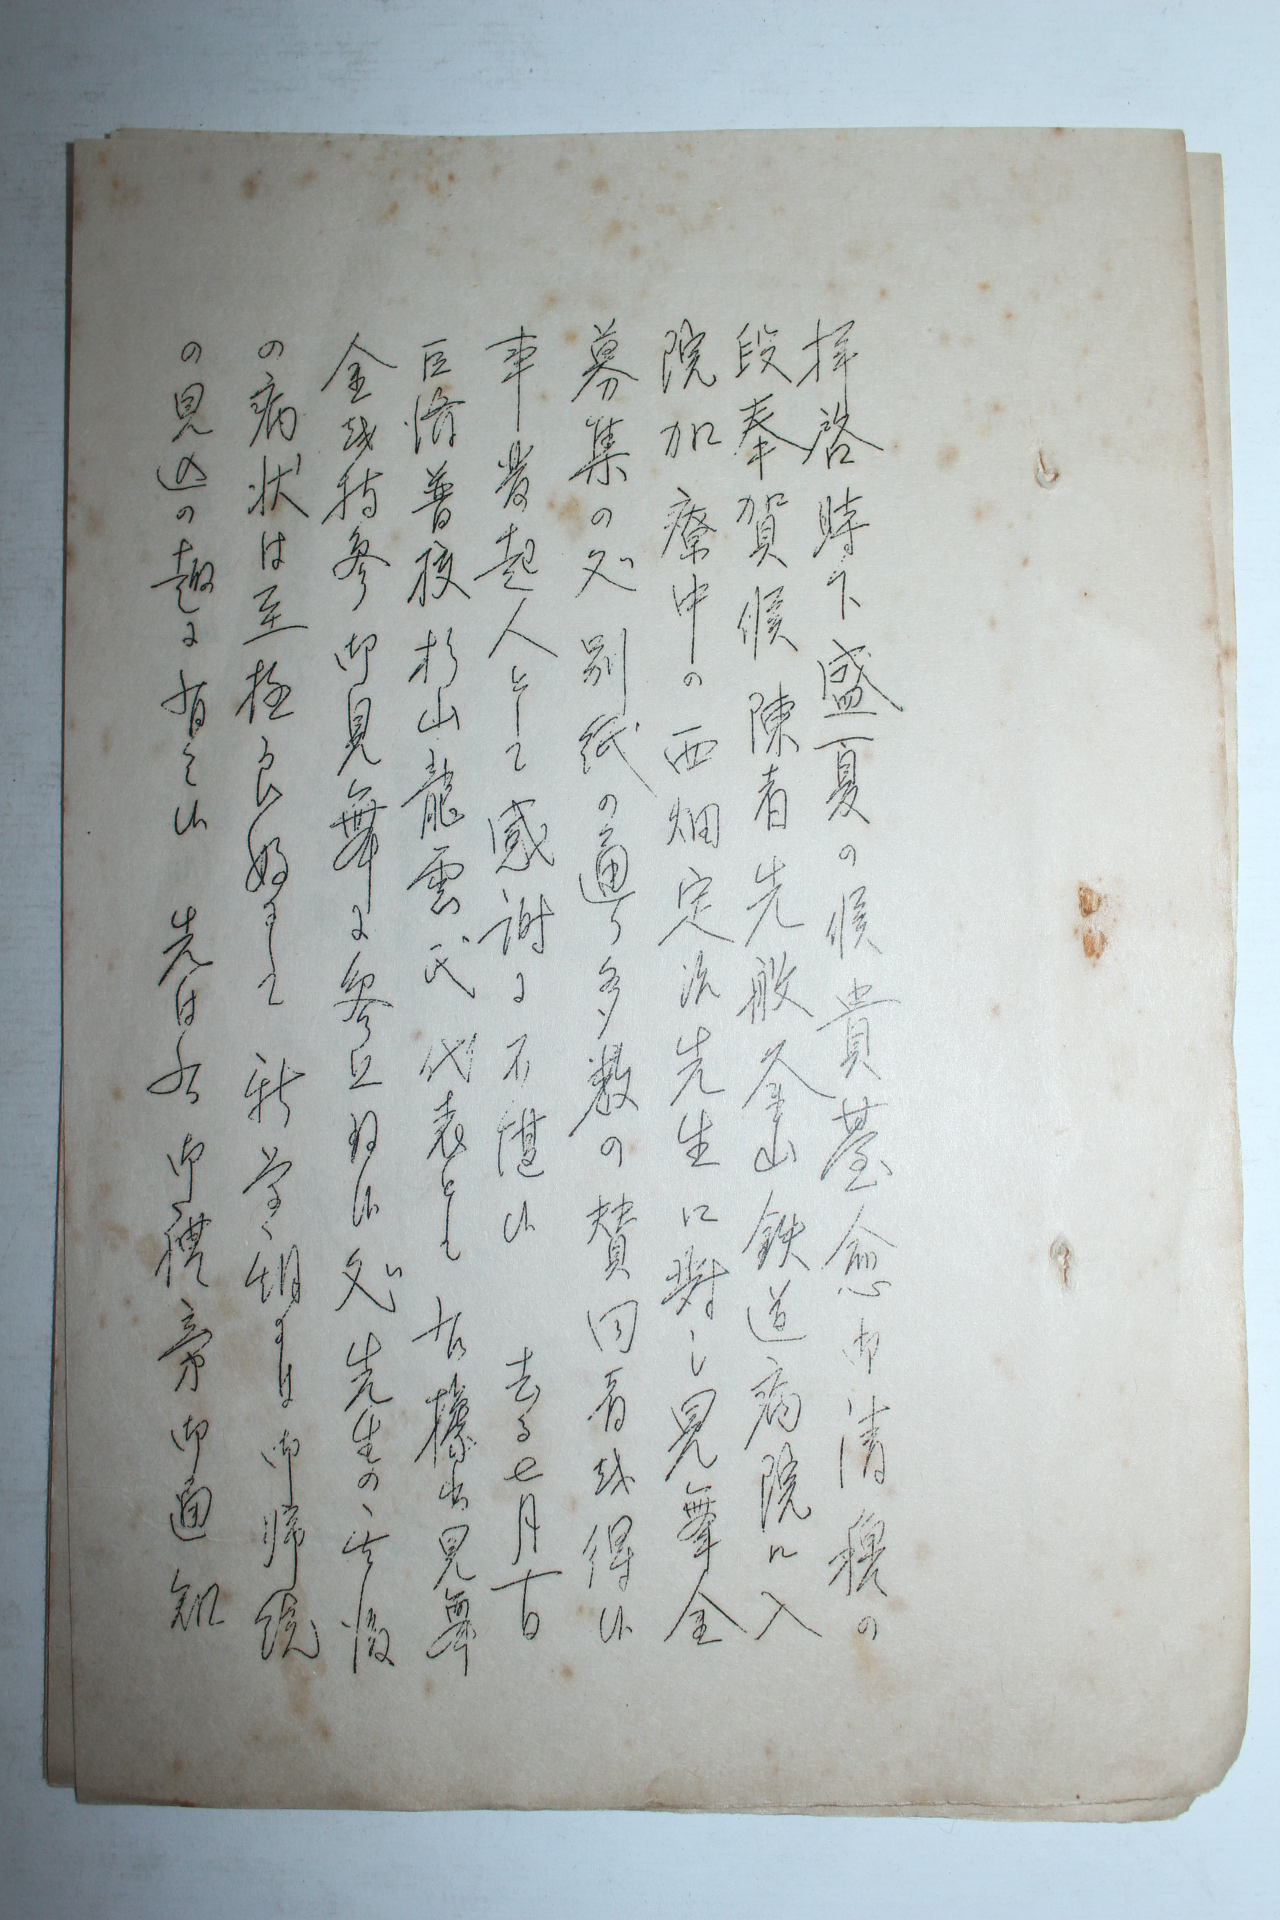 拝啓時下盛夏の候貴臺愈御清穆の
段奉賀候陳者先般釜山鉄道病院に入
院加療中の西畑定治先生に對し見舞金
募集の処別紙の通り多数の賛同者を得候
事発起人として感謝に不堪候 去る七月十日
巨済普校杉山龍雲氏代表として右様御見舞
金を持参御見舞に参上致候処先生の其後
の病状は至極良好にして新学期には御帰統
の見込の趣に有之候 先は右御禮旁御通知